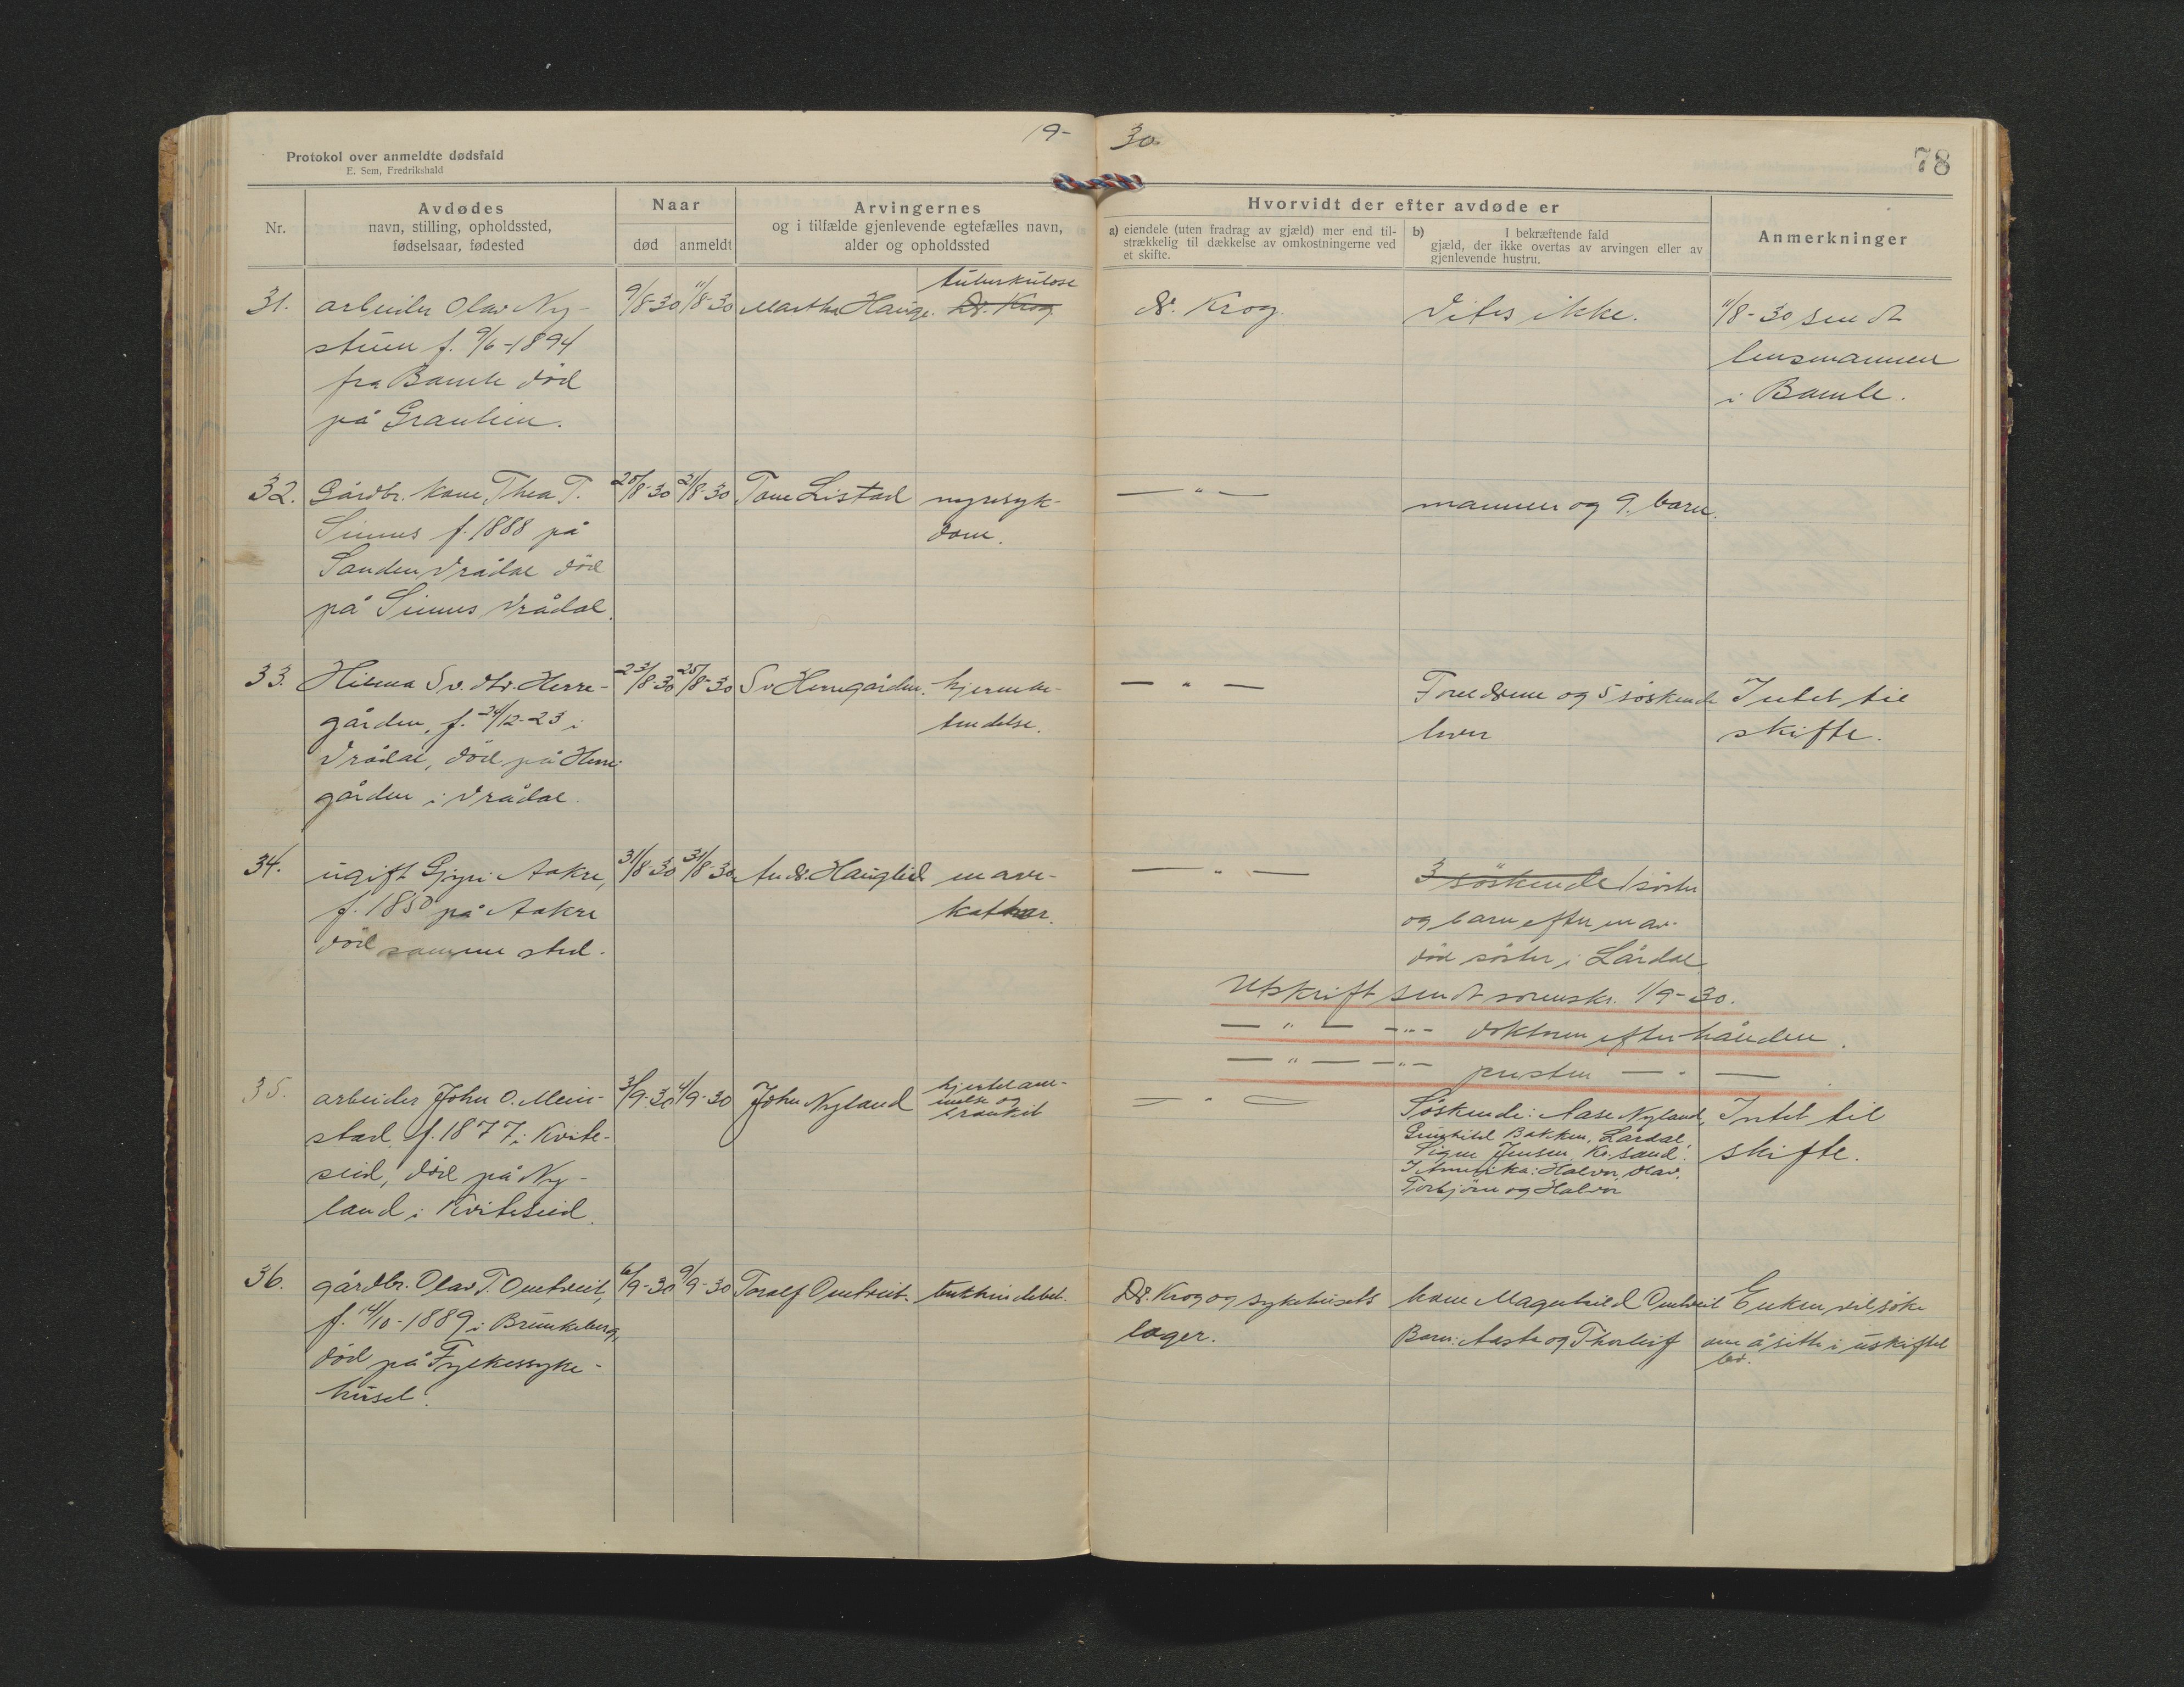 19-
30.
78
Protokol over anmeldte dødsfald
E. Sem, Fredrikshald
Nr.
Avdødes
navn, stilling, opholdssted,
fødselsaar, fødested
Naar
død
anmeldt
Arvingernes
og i tilfælde gjenlevende egtefælles navn,
alder og opholdssted
Hvorvidt der efter avdøde er
a) eiendele (uten fradrag av gjæld) mer end til-
strækkelig til dækkelse av omkostningerne ved
et skifte.
b) I bekræftende fald
gjæld, der ikke overtas av arvingen eller av
gjenlevende hustru.
Anmerkninger
31.
arbeider Olav Ny-
stuen f. 9/6-1894
fra Bamle död
på Granheim.
9/8-30
11/8-30
Martha Hauge.
tuberkulose
Dr. Krog
dr. Krog.
Vites ikke.
11/8-30 sendt
lensmannen
i Bamle.
32.
Gårdbr. kone, Thea T.
Sinnes f. 1888 på
Sanden Vrådal död
på Sinnes Vrådal.
20/8-30
21/8-30
Tone Listad
nyresyk-
dom.
— " —
mannen og 9. barn.
33.
Sv. dtr. Herre-
gården, f. 24/12-23 i
Vrådal, död på Herre-
gården i Vrådal.
23/8-30
25/8-30
Sv Herregården.
hjernebe-
tendelse.
— " —
Foreldrene og 5 söskende
lever
Intet til
skifte.
34.
ugift Gyri Aakre,
f. 1850 på Aakre
död samme sted.
31/8-30
31/8-30
Andr. Hauglid
mave-
kathar.
— " —
3 söskende 1 söster
og barn efter en av-
död söster i Lårdal
Utskrift sendt sorenskr. 1/9-30.
— " — -"- doktoren efter hånden.
— " — -"- presten — " —
35.
arbeider John O. Mein-
stad, f. 1877 i Kvite-
seid, död på Ny-
land i Kviteseid.
3/9-30
4/9-30
John Nyland
hjertelam-
melse og
— " —
Söskende: Aase Nyland,
Gunhild Bakken, Lårdal.
Signe Jensen, Kr.sand.
I Amerika: Halvor, Olav,
Torbjörn og Halvor
Intet til
skifte.
36.
gårdbr. Olav T. Omtveit,
f. 14/10-1889 i Brunkeberg,
död på Fylkessyke-
huset.
6/9-30
9/9-30
Toralf Omtveit.
Dr. Krog og sykehusets
læger.
kone Magnhild Omtveit
Barn: Aasta og Thorleif
Enken vil söke
om å sitte i uskiftet
bo.